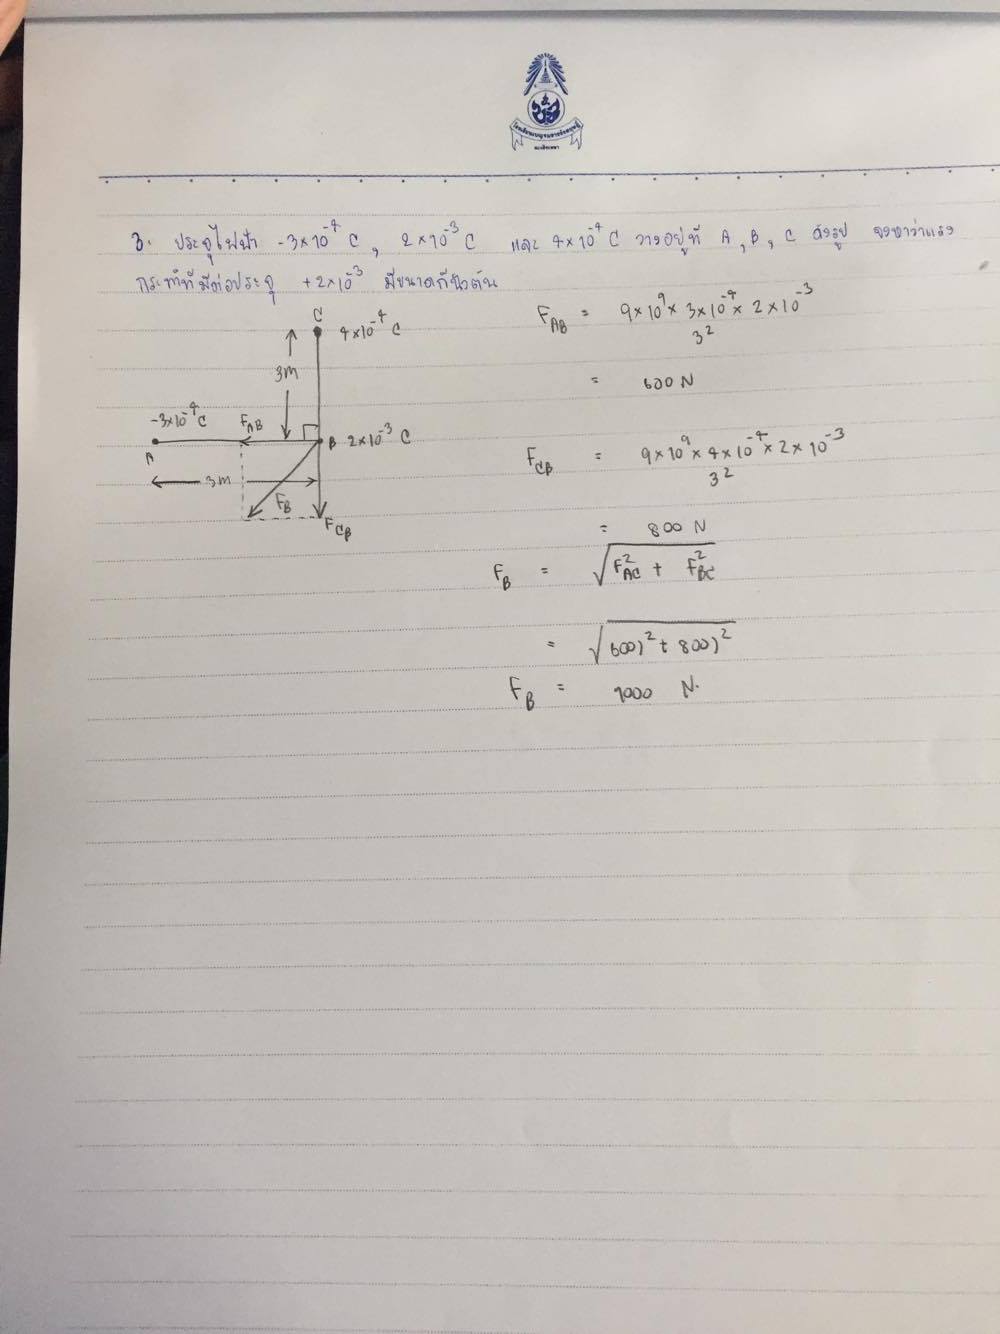 3. ประจุไฟฟ้า -3×10⁻⁴ C, 2×10⁻³ C และ 4×10⁻⁴ C วางอยู่ที่ A, B, C ดังรูป จงหาว่าแรง
กระทำที่มีต่อประจุ +2×10⁻³ มีขนาดกี่นิวตัน
C
4×10⁻⁴ C
3m
-3×10⁻⁴ C
F_AB
B 2×10⁻³ C
A
3m
F_B
F_CB
F_AB = 9×10⁹ × 3×10⁻⁴ × 2×10⁻³
3²
= 600 N
F_CB = 9×10⁹ × 4×10⁻⁴ × 2×10⁻³
3²
= 800 N
F_B = √F²_AC + F²_BC
= √600)² + 800)²
F_B = 1000 N.